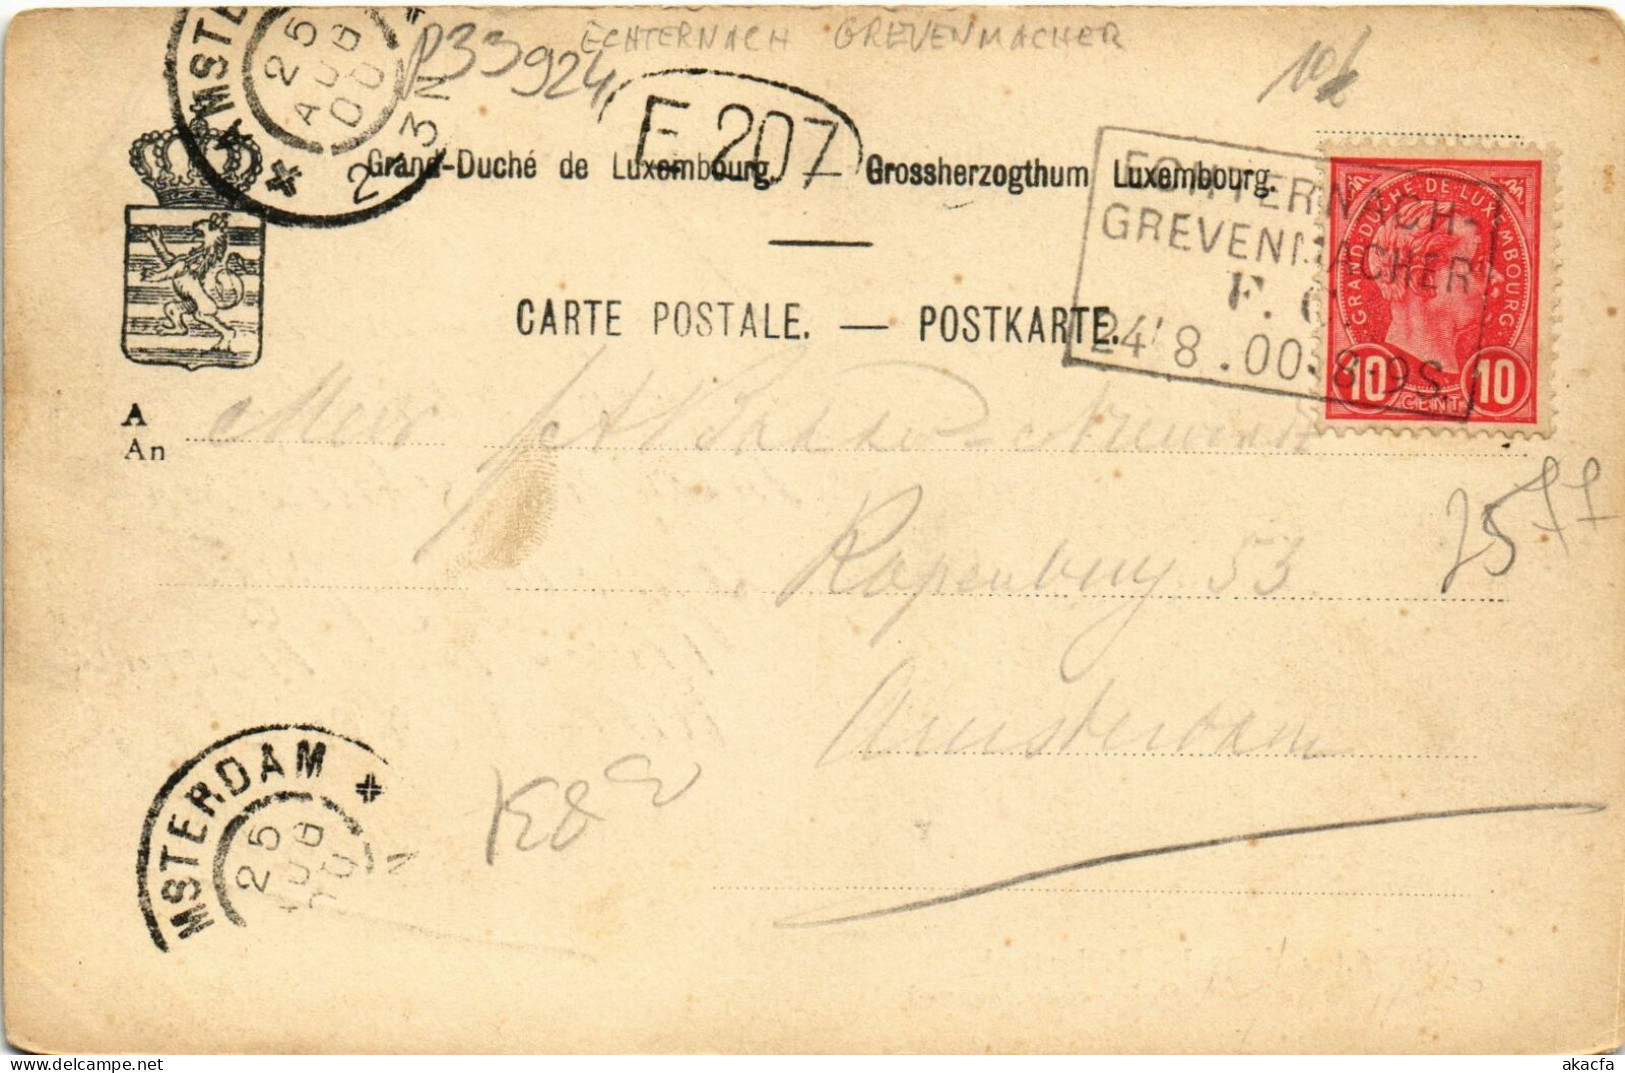 AMSTE
25
AUG
00
2-3N
P33924
ECHTERNACH GREVENMACHER
F 207
Grand-Duché de Luxembourg. Grossherzogthum Luxembourg.
ECHTERNACH-
GREVENMACHER
F. 6.
24/8.00.8-9S.
GRAND-DUCHÉ-DE-LUXEMBOURG
10 CENT. 10
CARTE POSTALE. — POSTKARTE.
A
An
2577
Rapenburg 53
Amsterdam
MSTERDAM
25
AUG
00
N
akacfa